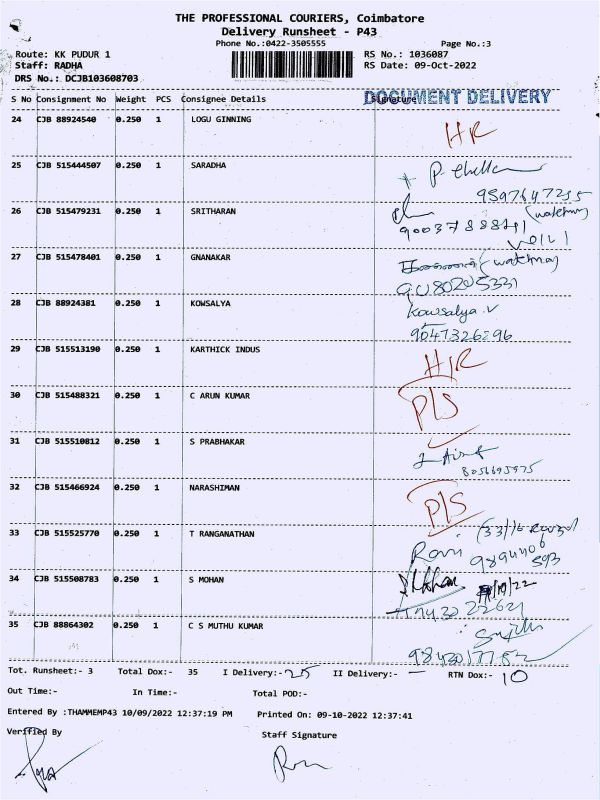 THE PROFESSIONAL COURIERS, Coimbatore
Delivery Runsheet - P43
Phone No.:0422-3505555
Page No.:3
Route: KK PUDUR 1
RS No.: 1036087
Staff: RADHA
RS Date: 09-Oct-2022
DRS No.: DCJB103608703
S No Consignment No Weight PCS Consignee Details Signature DOCUMENT DELIVERY
24 CJB 88924540 0.250 1 LOGU GINNING
25 CJB 515444507 0.250 1 SARADHA
26 CJB 515479231 0.250 1 SRITHARAN (watchman)
27 CJB 515478401 0.250 1 GNANAKAR (watchman)
9080205331
28 CJB 88924381 0.250 1 KOWSALYA Kowsalya.V
9047326296
29 CJB 515513190 0.250 1 KARTHICK INDUS
30 CJB 515488321 0.250 1 C ARUN KUMAR P/S
31 CJB 515510812 0.250 1 S PRABHAKAR
32 CJB 515466924 0.250 1 NARASHIMAN P/S
33 CJB 515525770 0.250 1 T RANGANATHAN
34 CJB 515508783 0.250 1 S MOHAN
35 CJB 88864302 0.250 1 C S MUTHU KUMAR
Tot. Runsheet:- 3 Total Dox:- 35 I Delivery:- 25 II Delivery:- — RTN Dox:- 10
Out Time:- In Time:- Total POD:-
Entered By :THAMMEMP43 10/09/2022 12:37:19 PM Printed On: 09-10-2022 12:37:41
Verified By Staff Signature